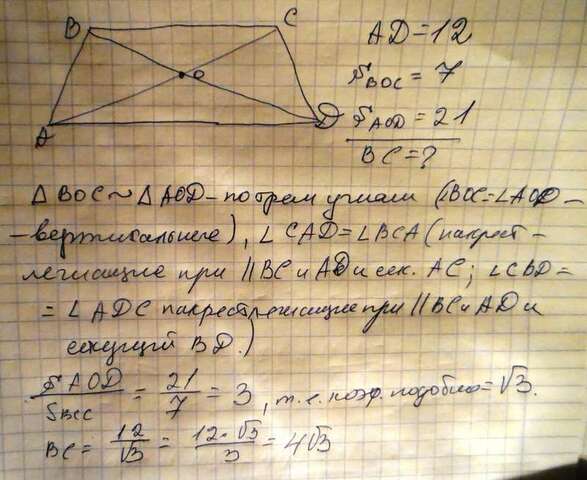 B C
AD=12
O
S BOC = 7
S AOD = 21
A D
BC=?
Δ BOC ~ Δ AOD - по трем углам (∠BOC=∠AOD -
- вертикальные), ∠ CAD=∠BCA (накрест -
лежащие при || BC и AD и сек. AC; ∠CBD =
= ∠ ADC накрестлежащие при || BC и AD и
секущей BD.)
S AOD / S BOC = 21/7 = 3, т.е. коэф. подобия = √3.
BC = 12/√3 = 12·√3/3 = 4√3